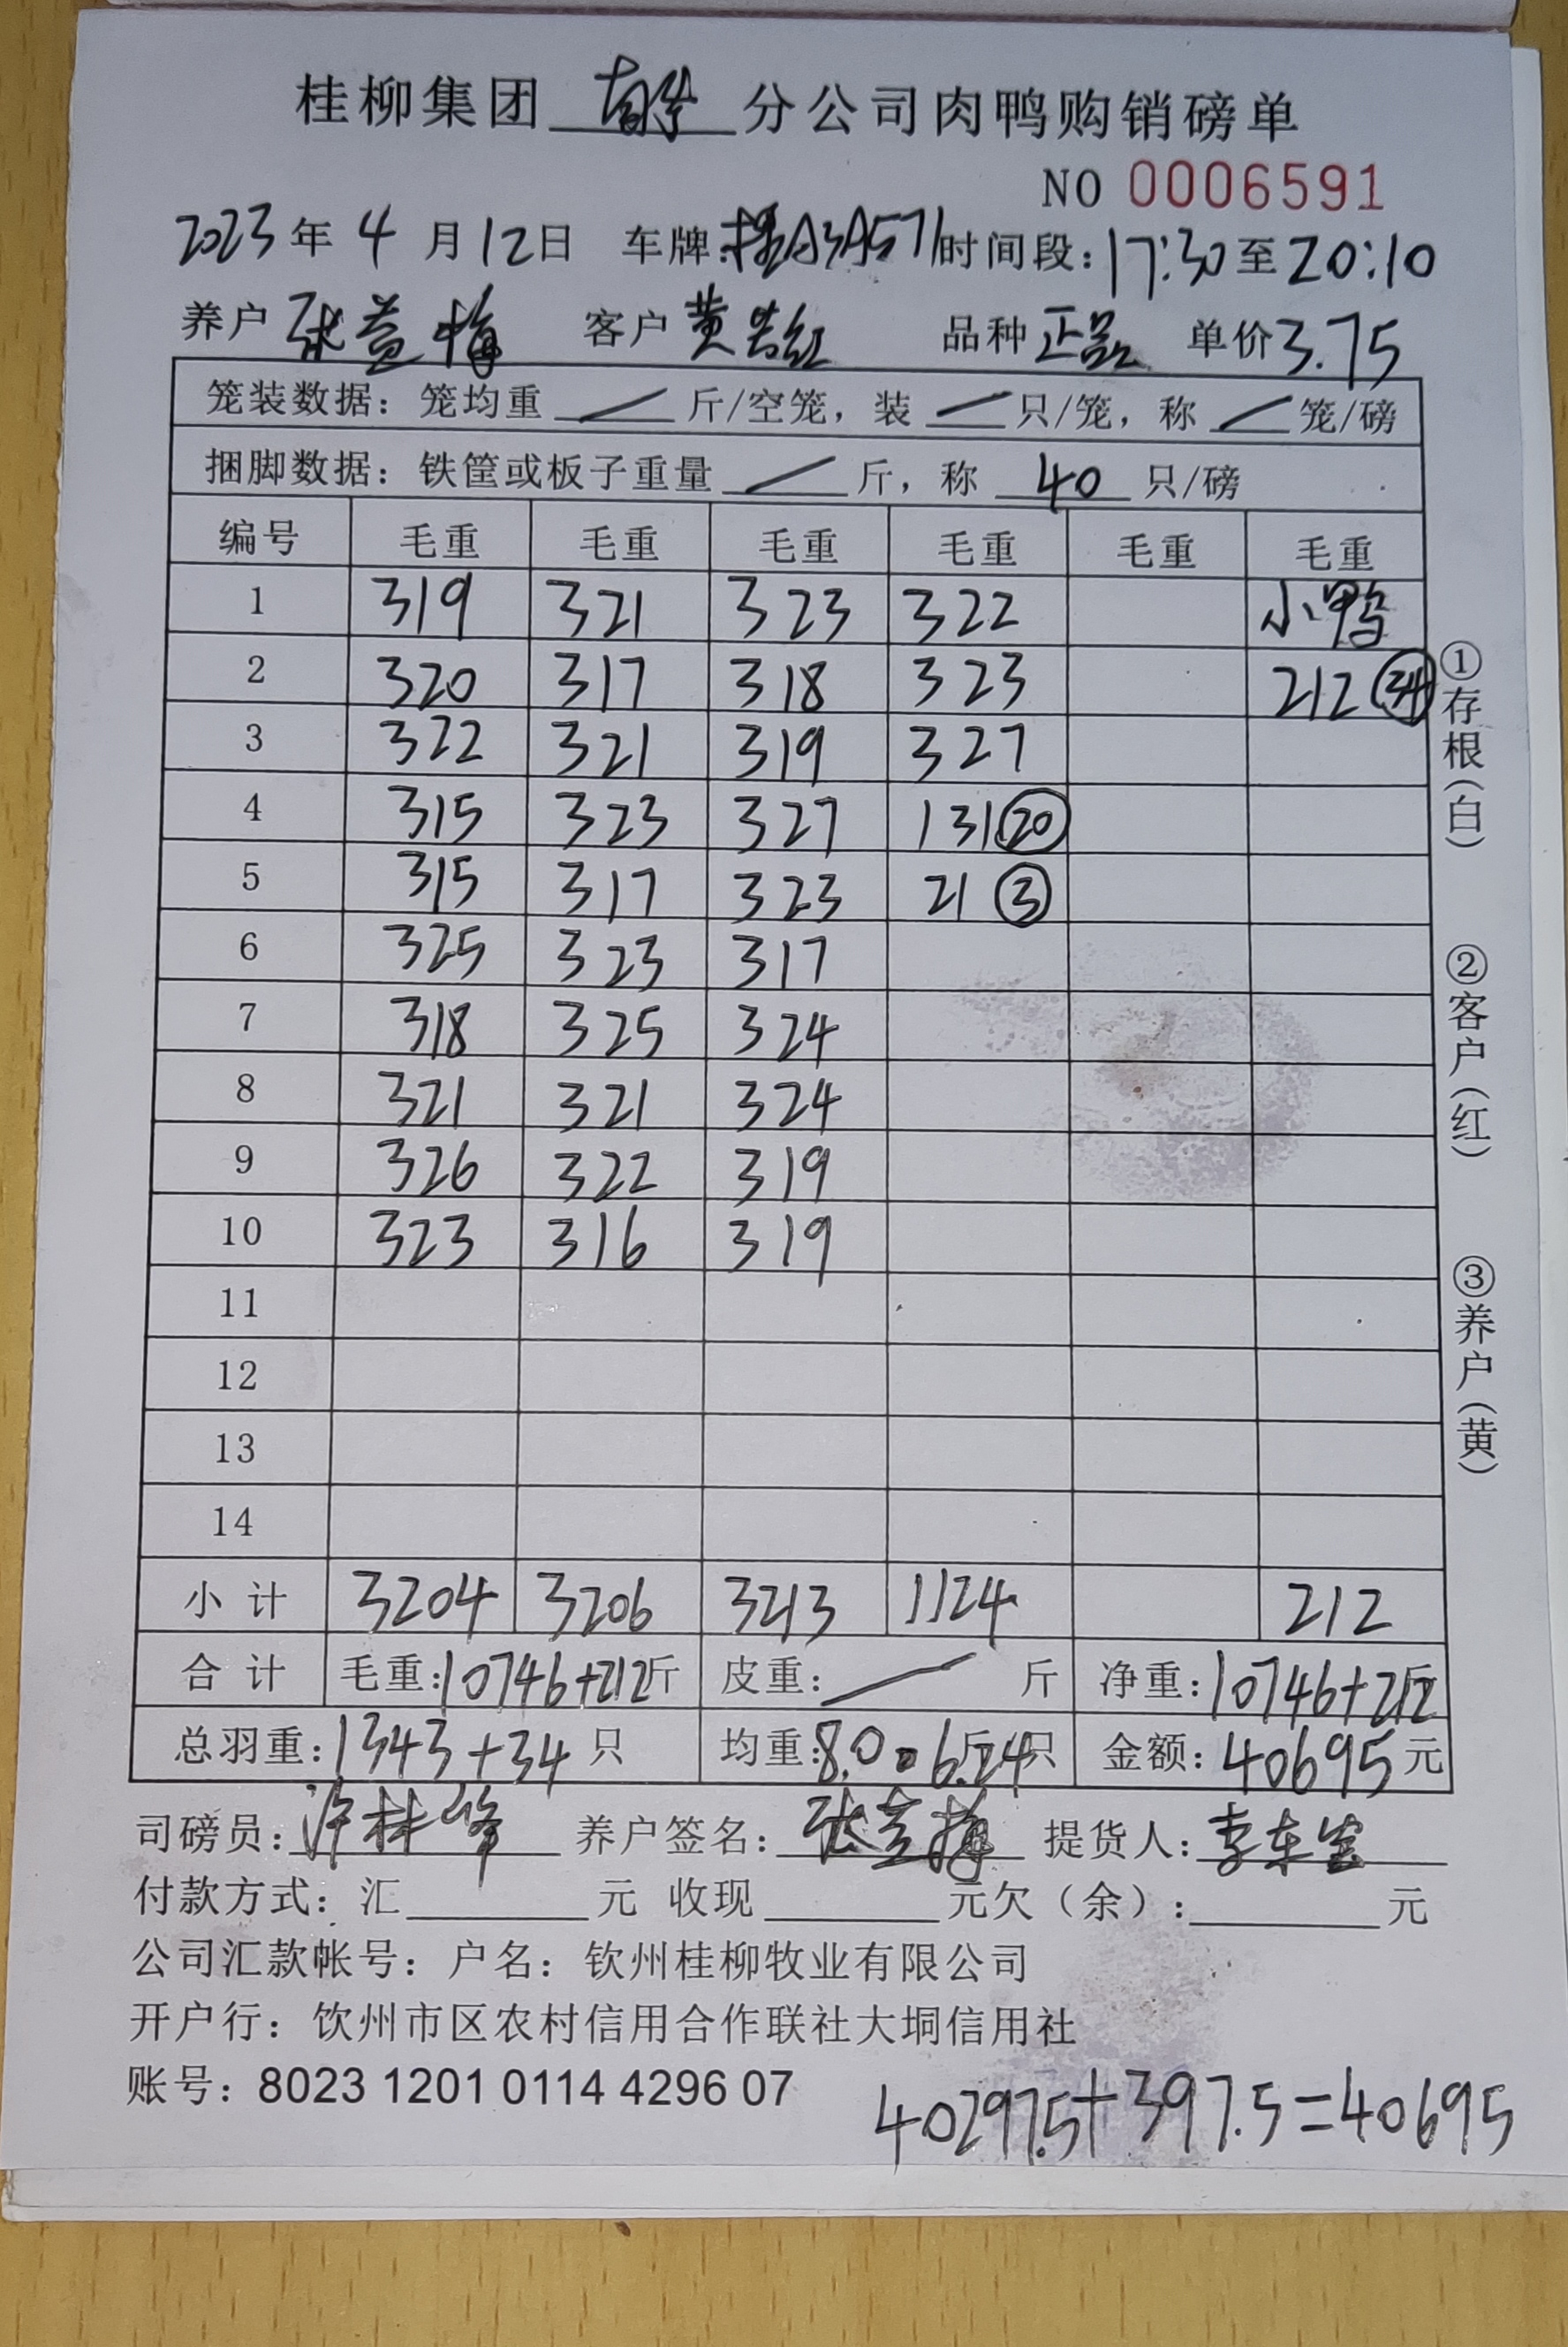 桂柳集团 分公司肉鸭购销磅单
NO 0006591
2023年 4月12日 车牌:桂A3A571 时间段:17:30至20:10
养户 张益梅 客户 黄 红 品种 正品 单价3.75
笼装数据: 笼均重 / 斤/空笼, 装 / 只/笼, 称 / 笼/磅
捆脚数据: 铁筐或板子重量 / 斤, 称 40 只/磅
编号 毛重 毛重 毛重 毛重 毛重 毛重
1 319 321 323 322 小鸭
2 320 317 318 323 212 34
3 322 321 319 327
4 315 323 327 131 20
5 315 317 323 21 3
6 325 323 317
7 318 325 324
8 321 321 324
9 326 322 319
10 323 316 319
11
12
13
14
小计 3204 3206 3213 1124 212
合计 毛重:10746+212斤 皮重: / 斤 净重:10746+212斤
总羽重:1343+34只 均重:8.0 6.24斤只 金额:40695元
司磅员:许林峰 养户签名:张益梅 提货人:李东
付款方式: 汇 元 收现 元欠(余): 元
公司汇款帐号: 户名: 钦州桂柳牧业有限公司
开户行: 饮州市区农村信用合作联社大垌信用社
账号: 8023 1201 0114 4296 07
40297.5+397.5=40695
①存根(白)
②客户(红)
③养户(黄)